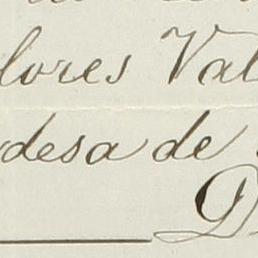 lores Val
desa de
D